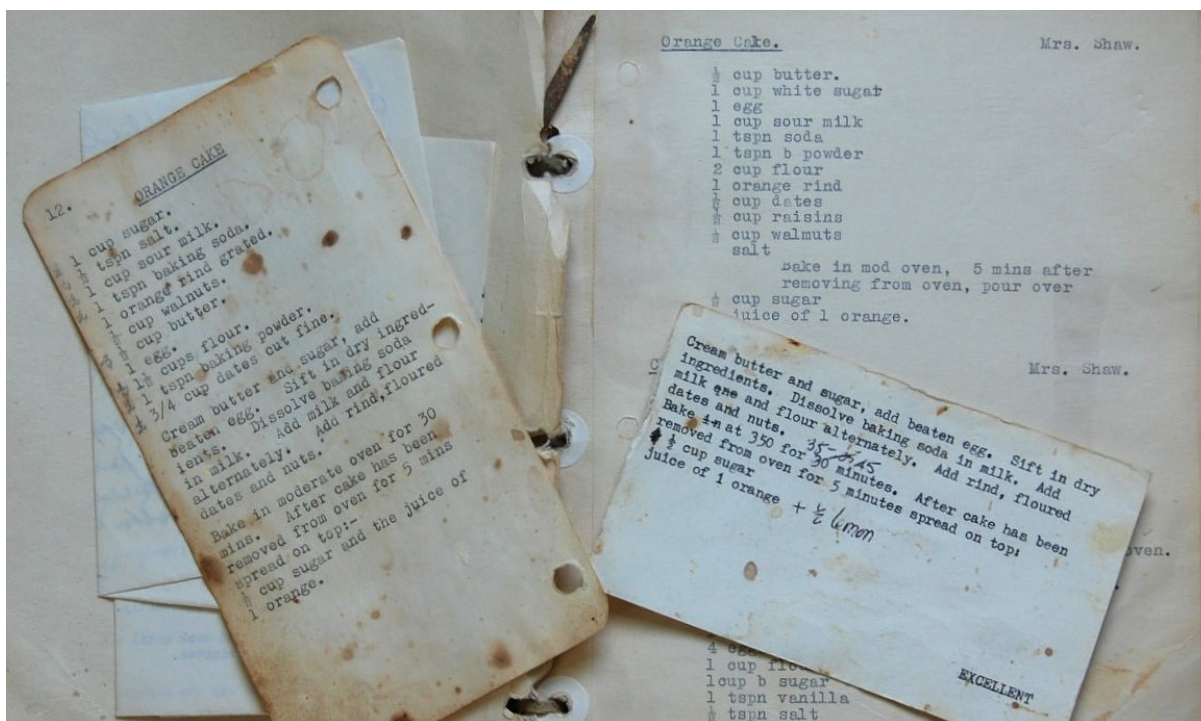 12. ORANGE CAKE
1 cup sugar.
½ tspn salt.
1 cup sour milk.
1 tspn baking soda.
1 orange rind grated.
½ cup walnuts.
½ cup butter.
1 egg.
1½ cups flour.
1 tspn baking powder.
3/4 cup dates cut fine.
Cream butter and sugar, add
beaten egg. Sift in dry ingred-
ients. Dissolve baking soda
in milk. Add milk and flour
alternately. Add rind,floured
dates and nuts.
Bake in moderate oven for 30
mins. After cake has been
removed from oven for 5 mins
spread on top:-
½ cup sugar and the juice of
1 orange.
Orange Cake. Mrs. Shaw.
½ cup butter.
1 cup white sugar
1 egg
1 cup sour milk
1 tspn soda
1 tspn b powder
2 cup flour
1 orange rind
½ cup dates
½ cup raisins
½ cup walmuts
salt
Bake in mod oven, 5 mins after
removing from oven, pour over
½ cup sugar
juice of 1 orange.
Mrs. Shaw.
Cream butter and sugar, add beaten egg. Sift in dry
ingredients. Dissolve baking soda in milk. Add
milk and flour alternately. Add rind, floured
dates and nuts.
35-45
Bake at 350 for 30 minutes. After cake has been
removed from oven for 5 minutes spread on top:
½ cup sugar
juice of 1 orange + ½ lemon
EXCELLENT
oven.
4
1 cup
1cup b sugar
1 tspn vanilla
½ tspn salt